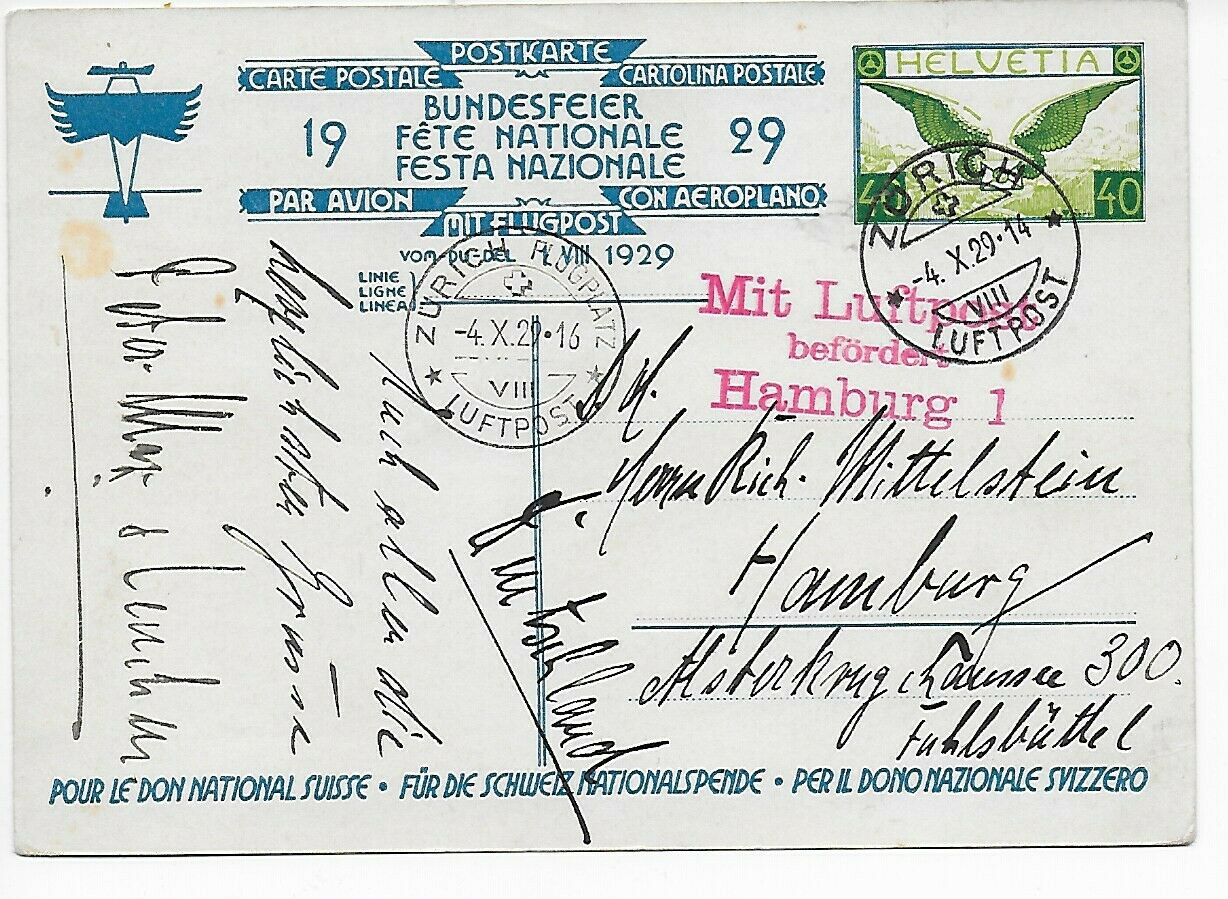 POSTKARTE
CARTE POSTALE CARTOLINA POSTALE
BUNDESFEIER
19 FÊTE NATIONALE 29
FESTA NAZIONALE
PAR AVION CON AEROPLANO
MIT FLUGPOST
VOM-DU-DEL VIII 1929
LINIE
LIGNE
LINEA
HELVETIA
40 40
ZÜRICH
-4.X.29·14
VIII
LUFTPOST
ZÜRICH FLUGPLATZ
-4.X.29·16
VIII
LUFTPOST
Mit Luftpost
befördert
Hamburg 1
Herrn Rich. Mittelstein
Hamburg
Alsterkrugchaussee 300.
Fuhlsbüttel
Deutschland
Euch allen die
herzlichsten Grüsse
POUR LE DON NATIONAL SUISSE • FÜR DIE SCHWEIZ. NATIONALSPENDE • PER IL DONO NAZIONALE SVIZZERO